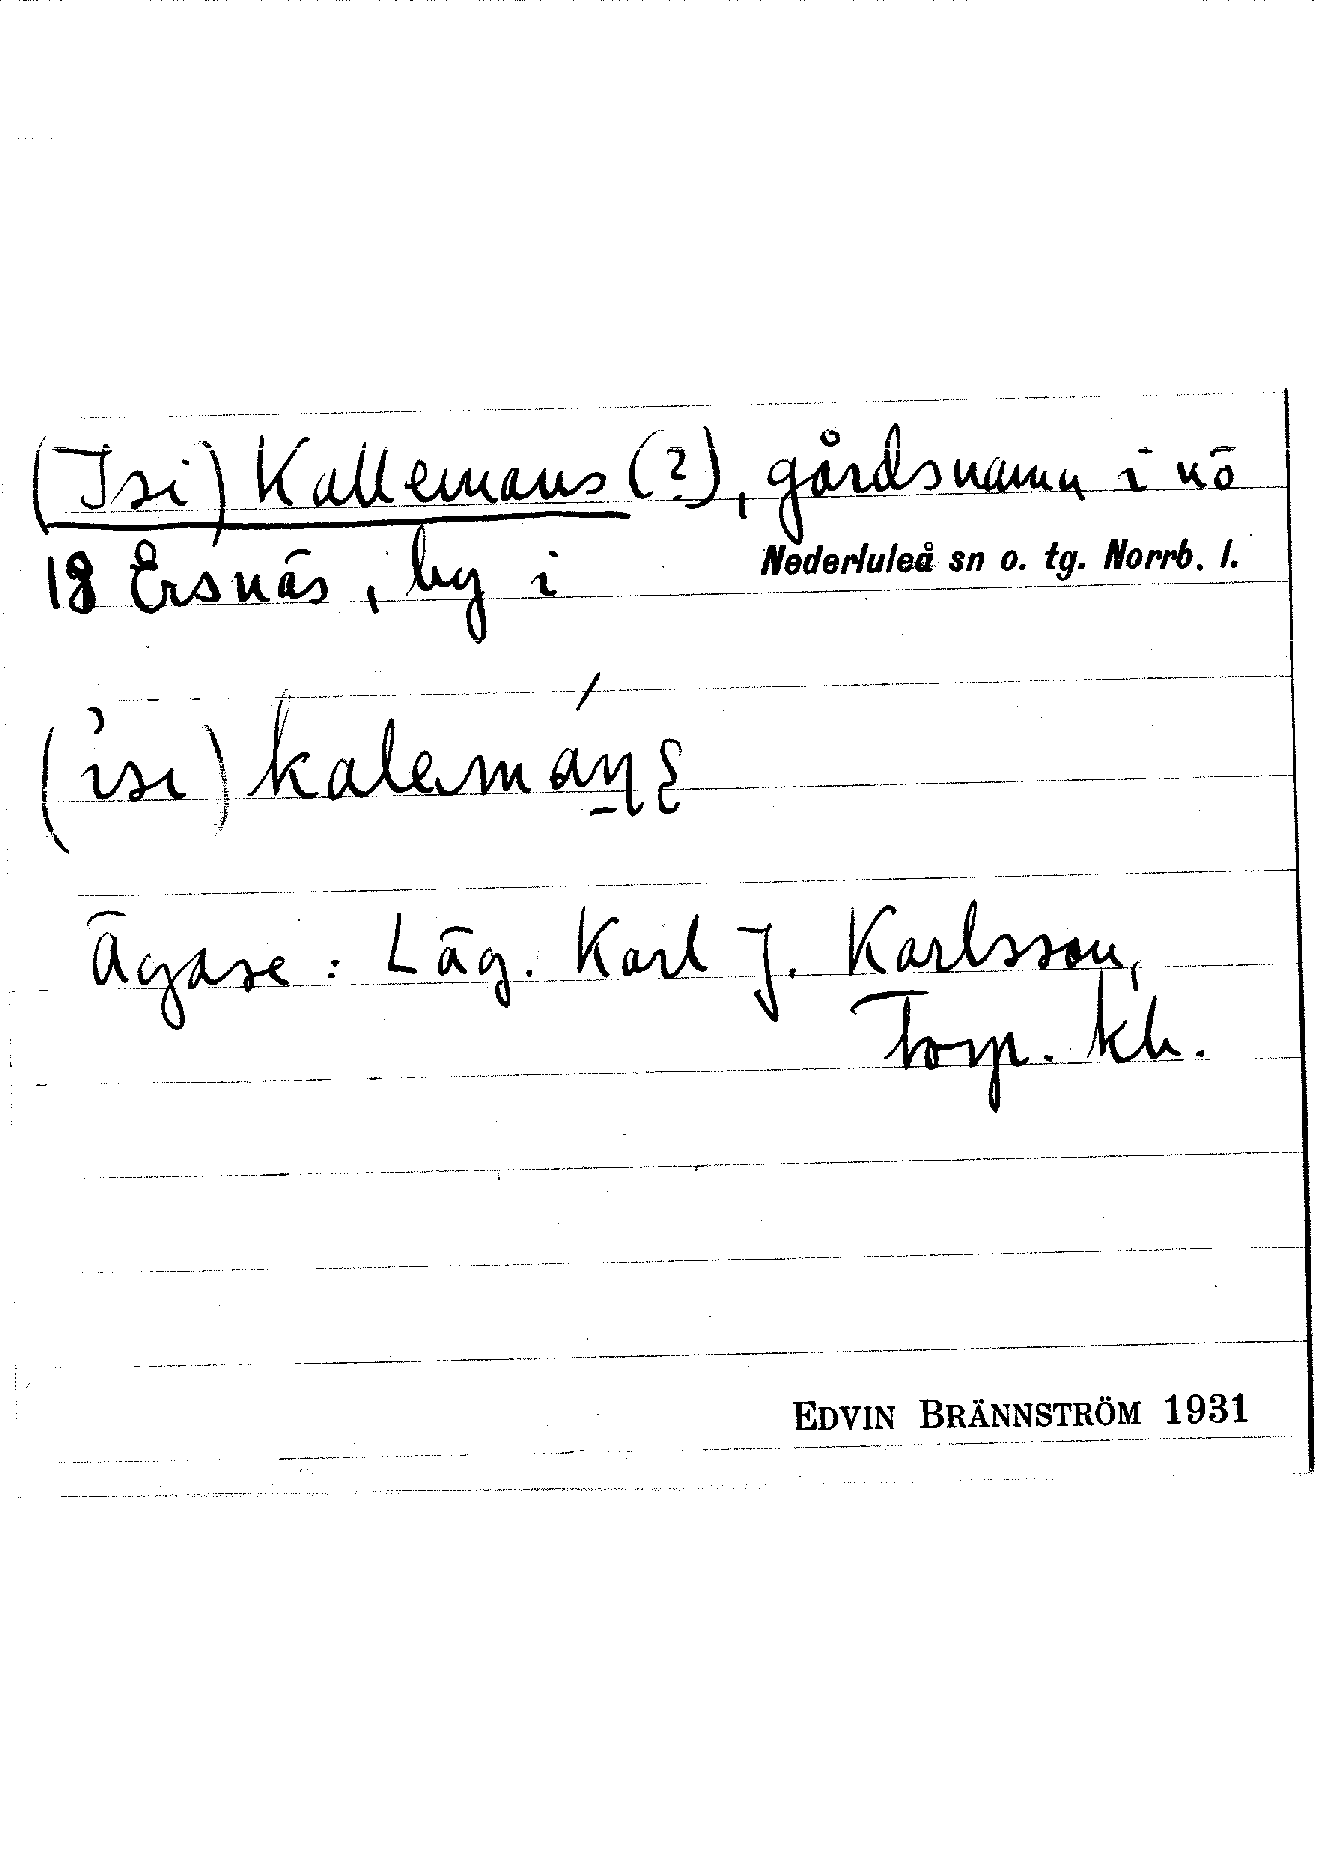 (Isi) Kallemans (?), gårdsnamn i nö
18 Ersnäs, by i Nederluleå sn o. tg. Norrb. l.
(isi) kalemáṉ
Ägare: Läg. Karl J. Karlsson,
Torp. kh.
EDVIN BRÄNNSTRÖM 1931